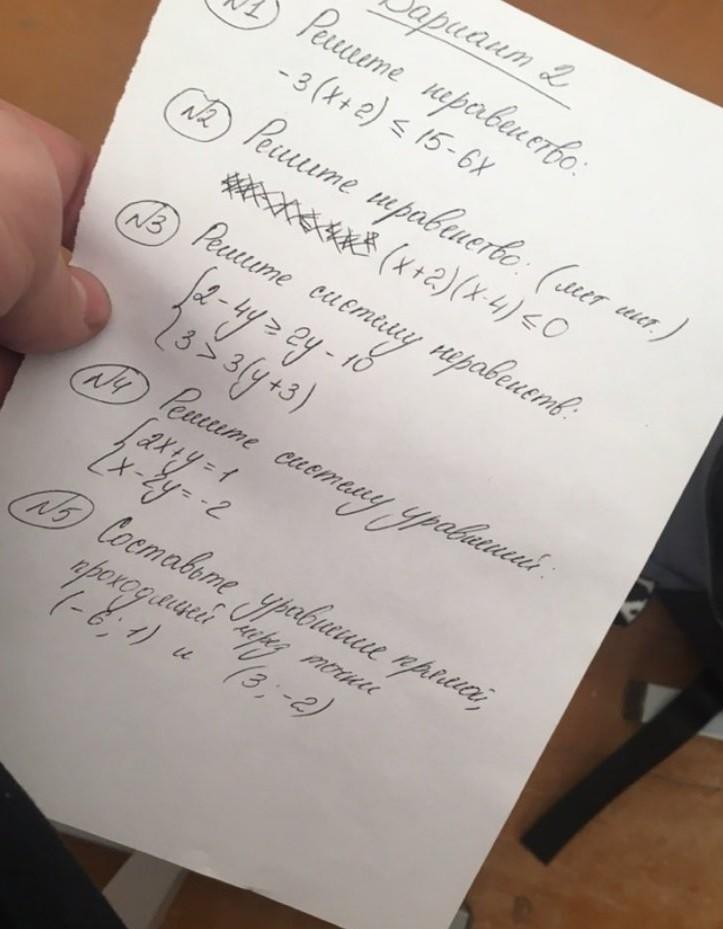 Вариант 2
№1 Решите неравенство:
-3(x+2) ≤ 15-6x
№2 Решите неравенство: (мет инт.)
(x+2)(x-4) ≤ 0
№3 Решите систему неравенств:
{2-4y ≥ 2y-10
{3 > 3(y+3)
№4 Решите систему уравнений:
{2x+y=1
{x-2y=-2
№5 Составьте уравнение прямой,
проходящей через точки
(-6; 1) и (3; -2)